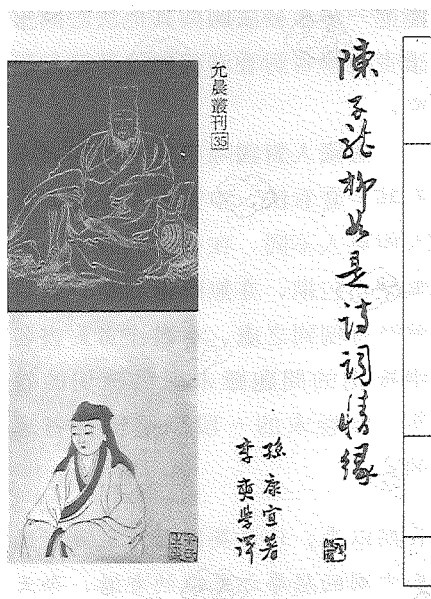 陳子龍柳如是诗词情緣
孫康宜著
李奭學譯
允晨叢刊35